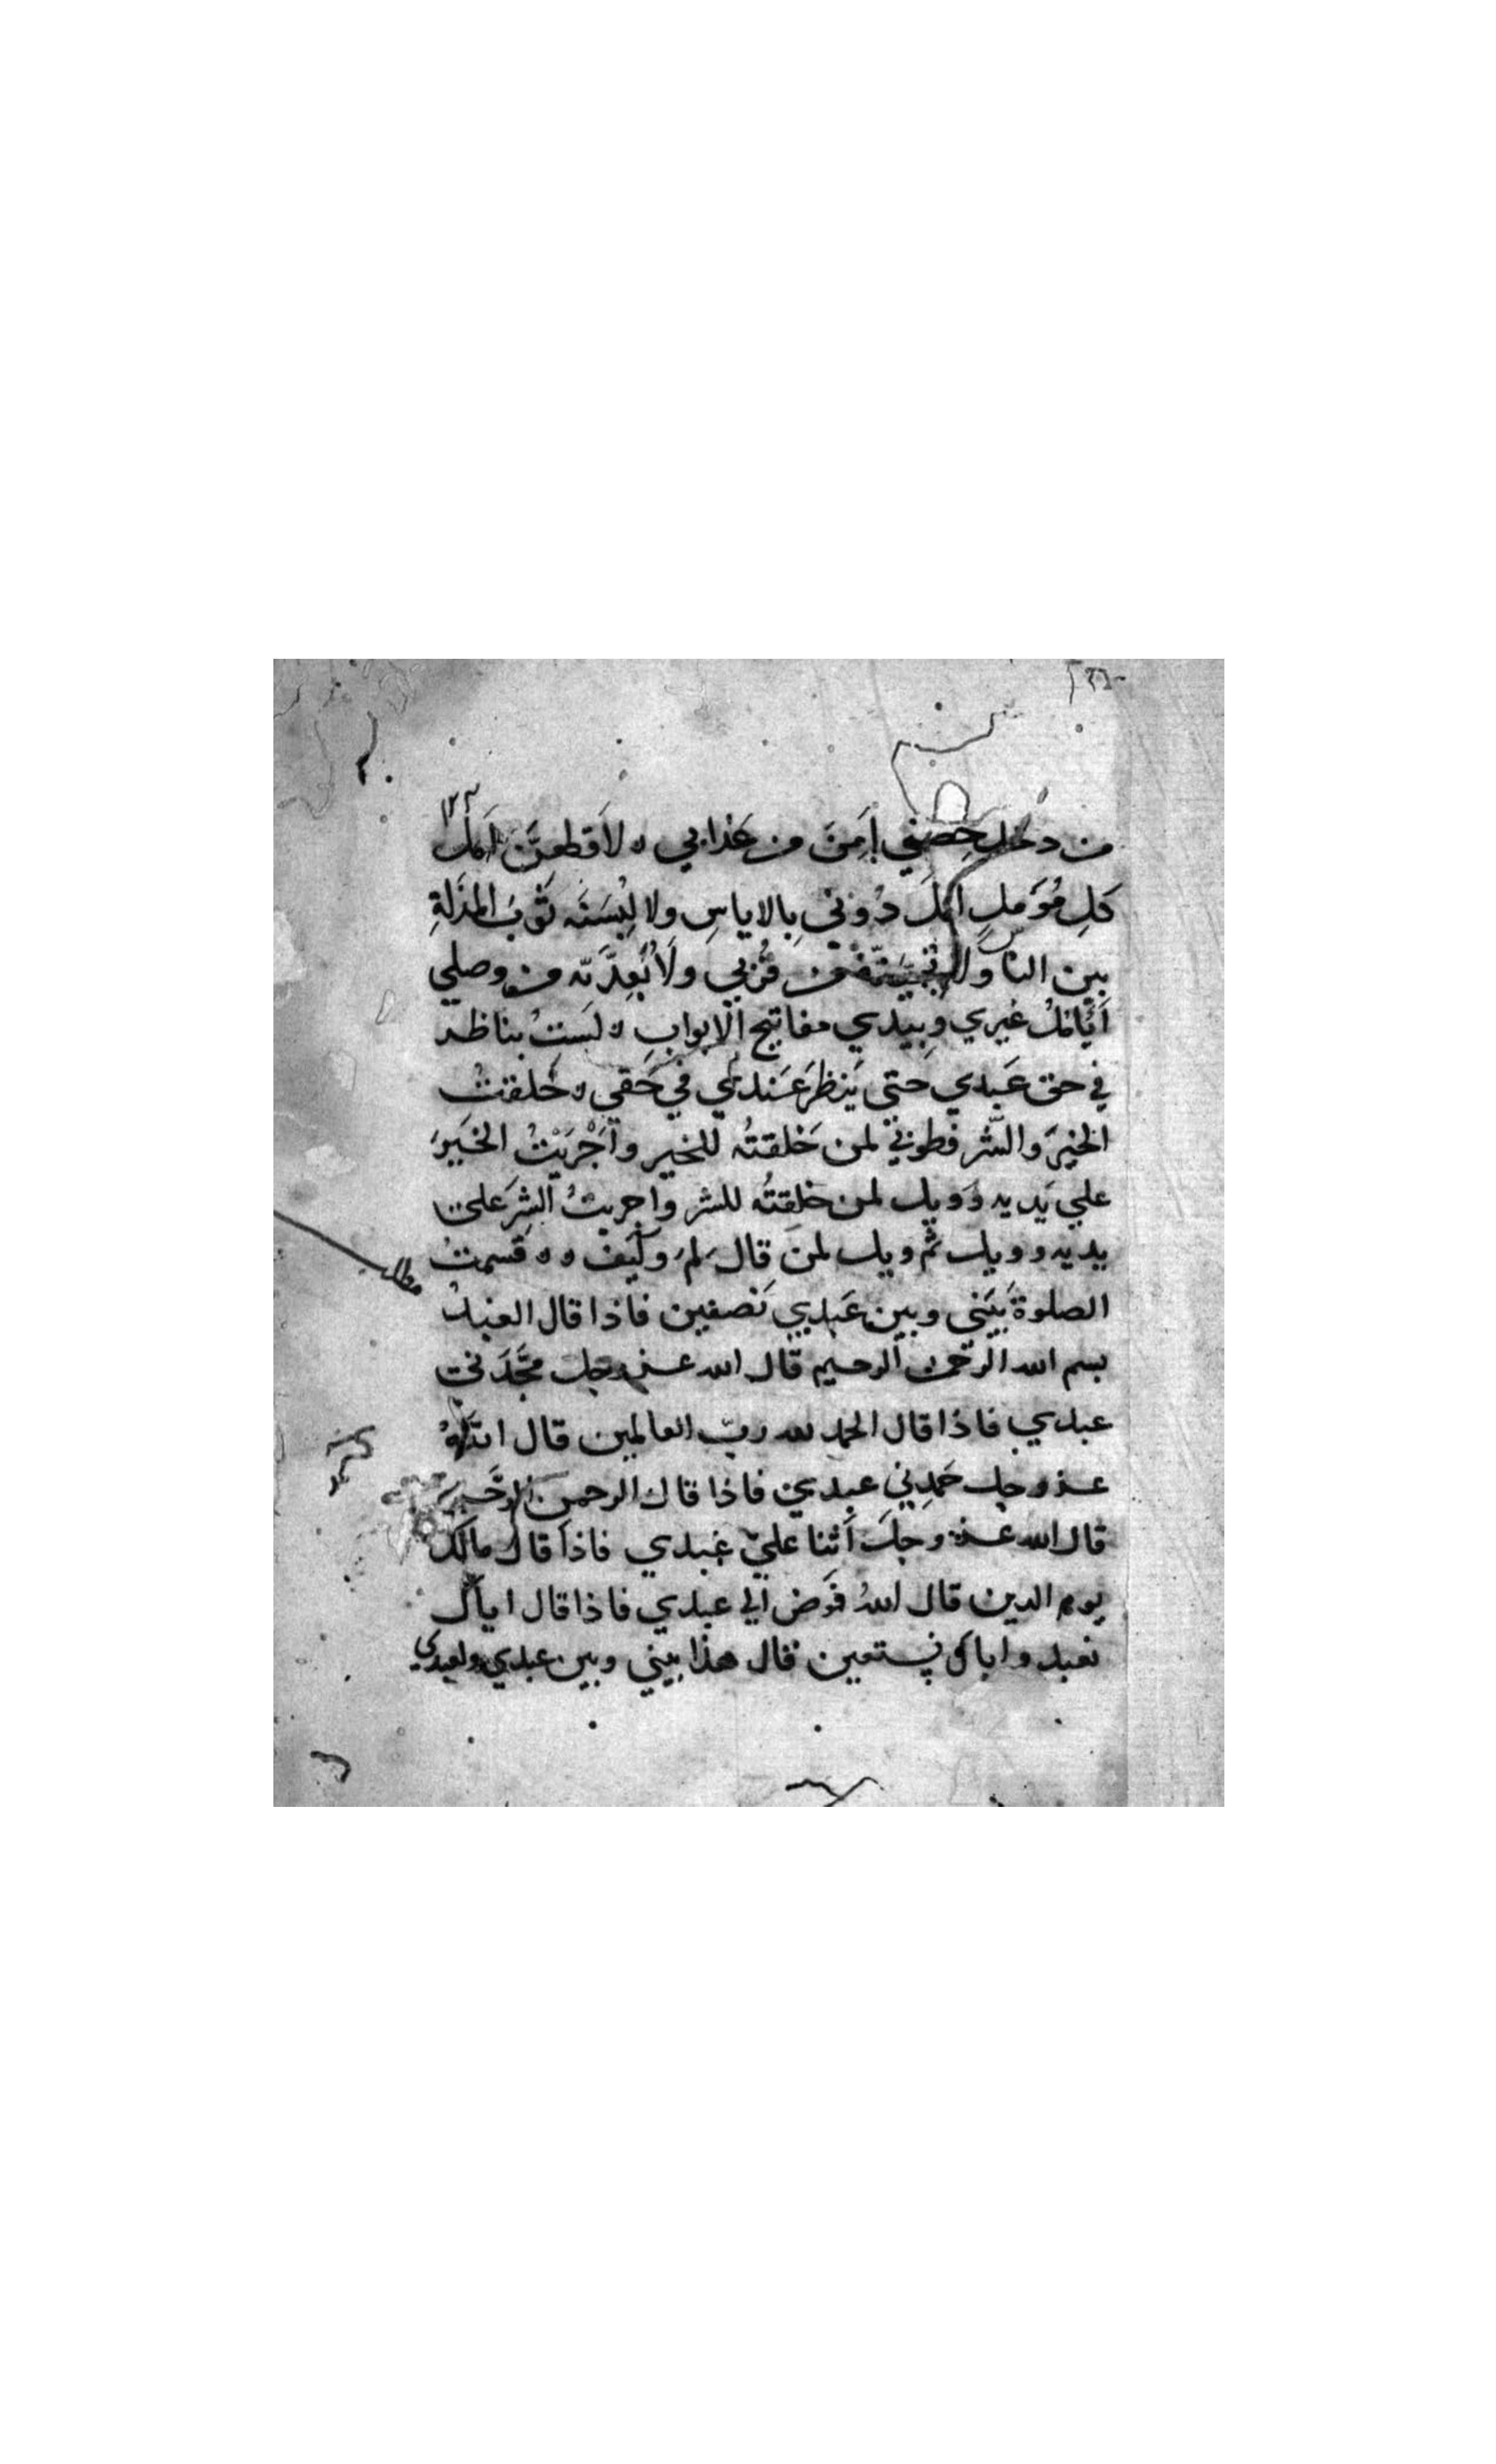 من دخل حِصني أَمِنَ من عَذابي ۵ لأَقطعنَّ أَمَلَ
كلِ مُؤَملٍ اَمَلَ دُوني بِالاياسِ ولالبِسَنَّه ثَوبَ المذَلةِ
بين الناس من قُربي ولأُبَعِدَّنَّه من وصلي
أيُأمَلُ غيري وبِيَدي مفاتيح الابوابِ ۵ لَستُ بناظر
في حق عَبدي حتى يَنظرَ عَبدي في حَقي ۵ خَلقتُ
الخيرَ والشر فطوبي لمن خَلقتُه للخير وأَجْرَيْتُ الخَيرَ
علي يَديه وَويل لمن خلقتُه للشر واجريتُ الشرَ علي
يديه وويل ثم ويل لمن قال لِمَ وكيف ۵۵ قسمتُ
الصلوةَ بَيني وبين عَبدِي نصفين فاذا قال العبدُ
بسم الله الرحمن الرحيم قال الله عز وجل مجَّدَني
عبدي فاذا قال الحمد لله ربّ العالمين قال اللهُ
عز وجل حَمدِني عبدي فاذا قال الرحمن الرحيم
قال الله عز وجل أَثنا عليّ عبدي فاذا قال مالك
يوم الدين قال اللهُ فَوَض الي عبدي فاذا قال اياك
نعبد واياك نستعين قال هذا بيني وبين عبدي ولعبدي
مطلب